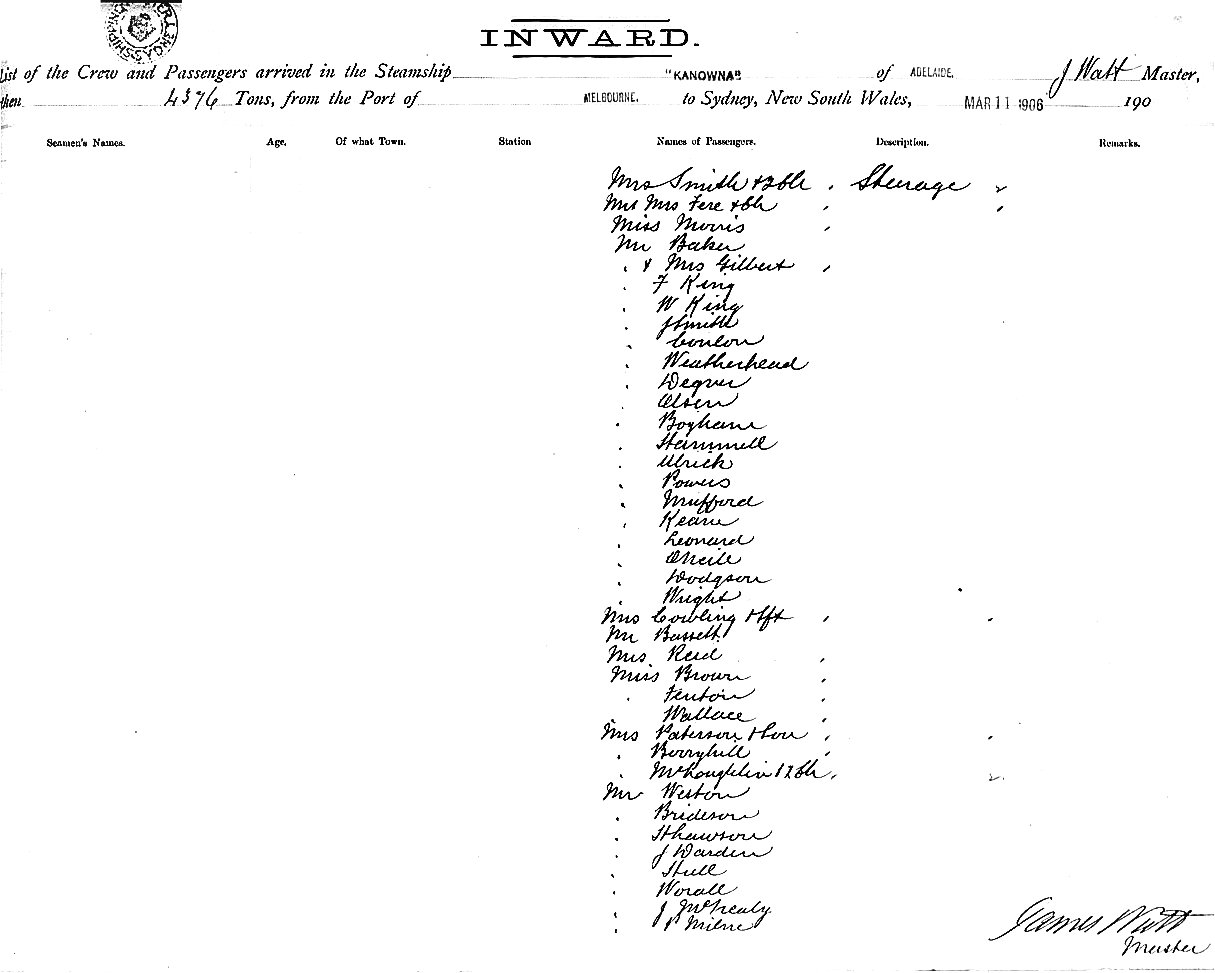 INWARD.
List of the Crew and Passengers arrived in the Steamship "KANOWNA" of ADELAIDE, J Watt Master,
4376 Tons, from the Port of MELBOURNE. to Sydney, New South Wales, MAR 11 1906 190
Seamen's Names. Age. Of what Town. Station Names of Passengers. Description. Remarks.
Mrs Smith + 2 Ch , Steerage 2
Mr & Mrs Fere + Ch , ,
Miss Morris ,
Mr Baker
, & Mrs Gilbert ,
, F King
, W King
, J Smith
, Conlon
, Weatherhead
, Degver
, Olsen
, Boghane
, Hammell
, Ulrich
, Powers
, Mufford
, Keane
, Leonard
, ONeile
, Dodgson
, Wright
Mrs Cowling + Ift , ,
Mr Bassett
Mrs Reid ,
Miss Brown ,
, Fenton ,
, Wallace ,
Mrs Paterson + Son , ,
, Berryhill ,
, McLoughlin + 2 Ch , 2.
Mr Weston
, Brideson
, Shawson
, J Warden
, Hull
, Worall
, J McHealy
, P Milne
James Watt
Master